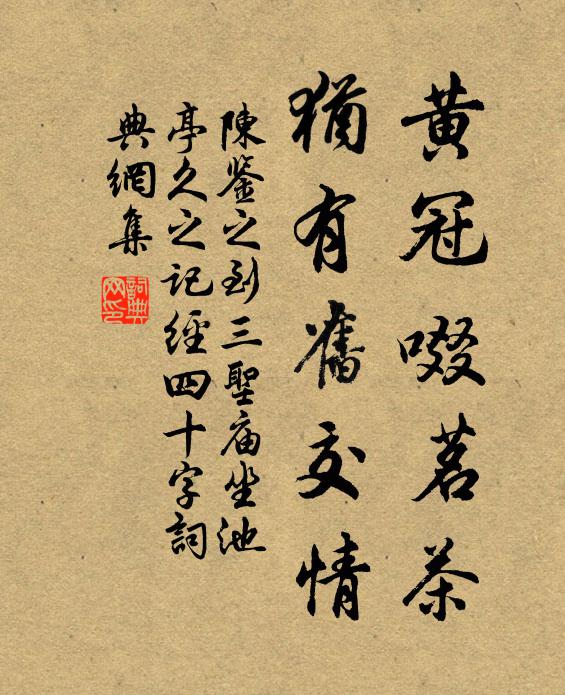 黄冠啜茗茶
猶有舊交情
陳鑒之到三聖庙坐池
亭久之记經四十字詞
典網集
詞典
网印